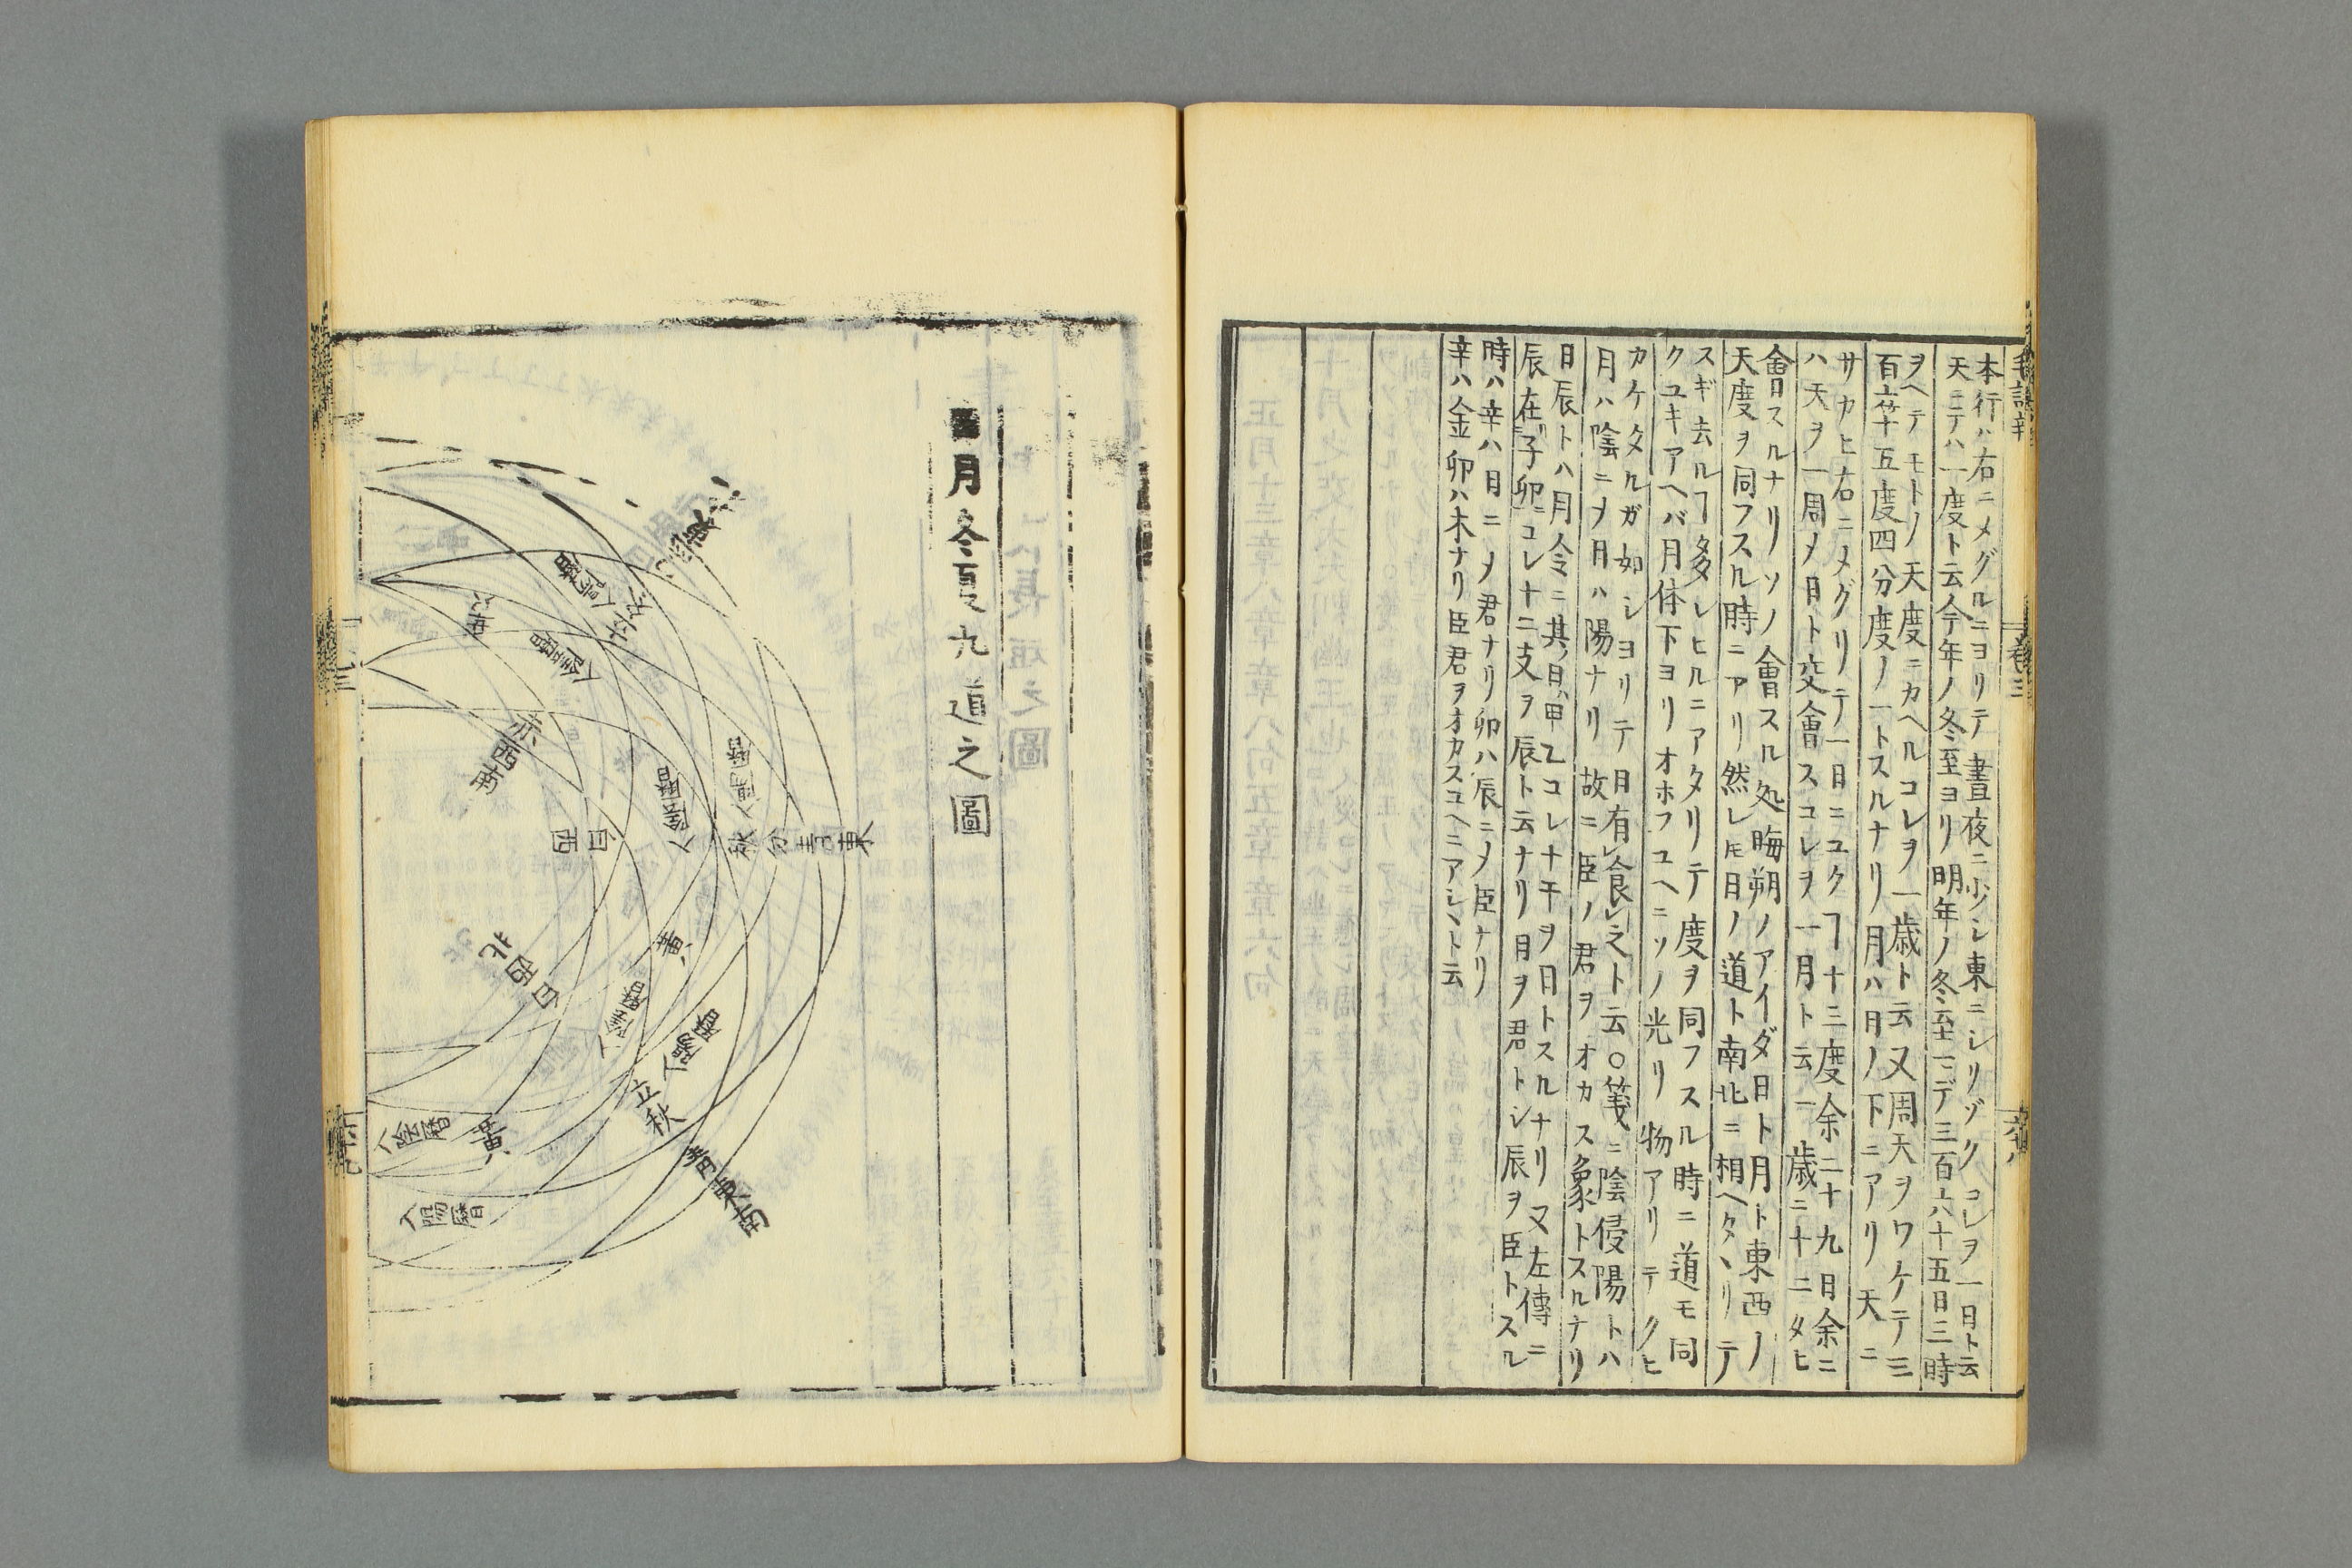 本行ハ右ニメグルニヨリテ晝夜ニ少シ東ニシリゾクコレヲ一日ト云
天ニテハ一度ト云今年ノ冬至ヨリ明年ノ冬至マデ三百六十五日三時
ヲヘテモトノ天度ニカヘルコレヲ一歳ト云又周天ヲワケテ三
百六十五度四分度ノ一トスルナリ月ハ日ノ下ニアリ天ニ
サカヒ右ニメグリテ一日ニユクヿ十三度余二十九日余ニ
ハ天ヲ一周メ日ト交會スコレヲ一月ト云一歳ニ十二タヒ
會スルナリソノ會スル処晦朔ノアイダ日ト月ト東西ノ
天度ヲ同フスル時ニアリ然レ𪜈日ノ道ト南北ニ相ヘタヽリテ
スギ去ルヿ多レヒルニアタリテ度ヲ同フスル時ニ道モ同
クユキアヘバ月体下ヨリオホフユヘニソノ光リ物アリテクヒ
カケタルガ如シヨリテ日有食之ト云○箋ニ陰侵陽トハ
月ハ陰ニメ日ハ陽ナリ故ニ臣ノ君ヲオカス象トスルナリ
日辰トハ月令ニ其日甲乙コレ十干ヲ日トスルナリ又左傳ニ
辰在子卯コレ十二支ヲ辰ト云ナリ日ヲ君トシ辰ヲ臣トスル
時ハ辛ハ日ニメ君ナリ卯ハ辰ニメ臣ナリ
辛ハ金卯ハ木ナリ臣君ヲオカスユヘニアシヽト云
卷三
月冬夏九道之圖
入陽暦
入陰暦
赤西南
入陽暦
入陰暦
秋分青東
白西
黄
入陰暦
入陽暦
立秋
青東南
白西北
入陰暦
黄
入陽暦